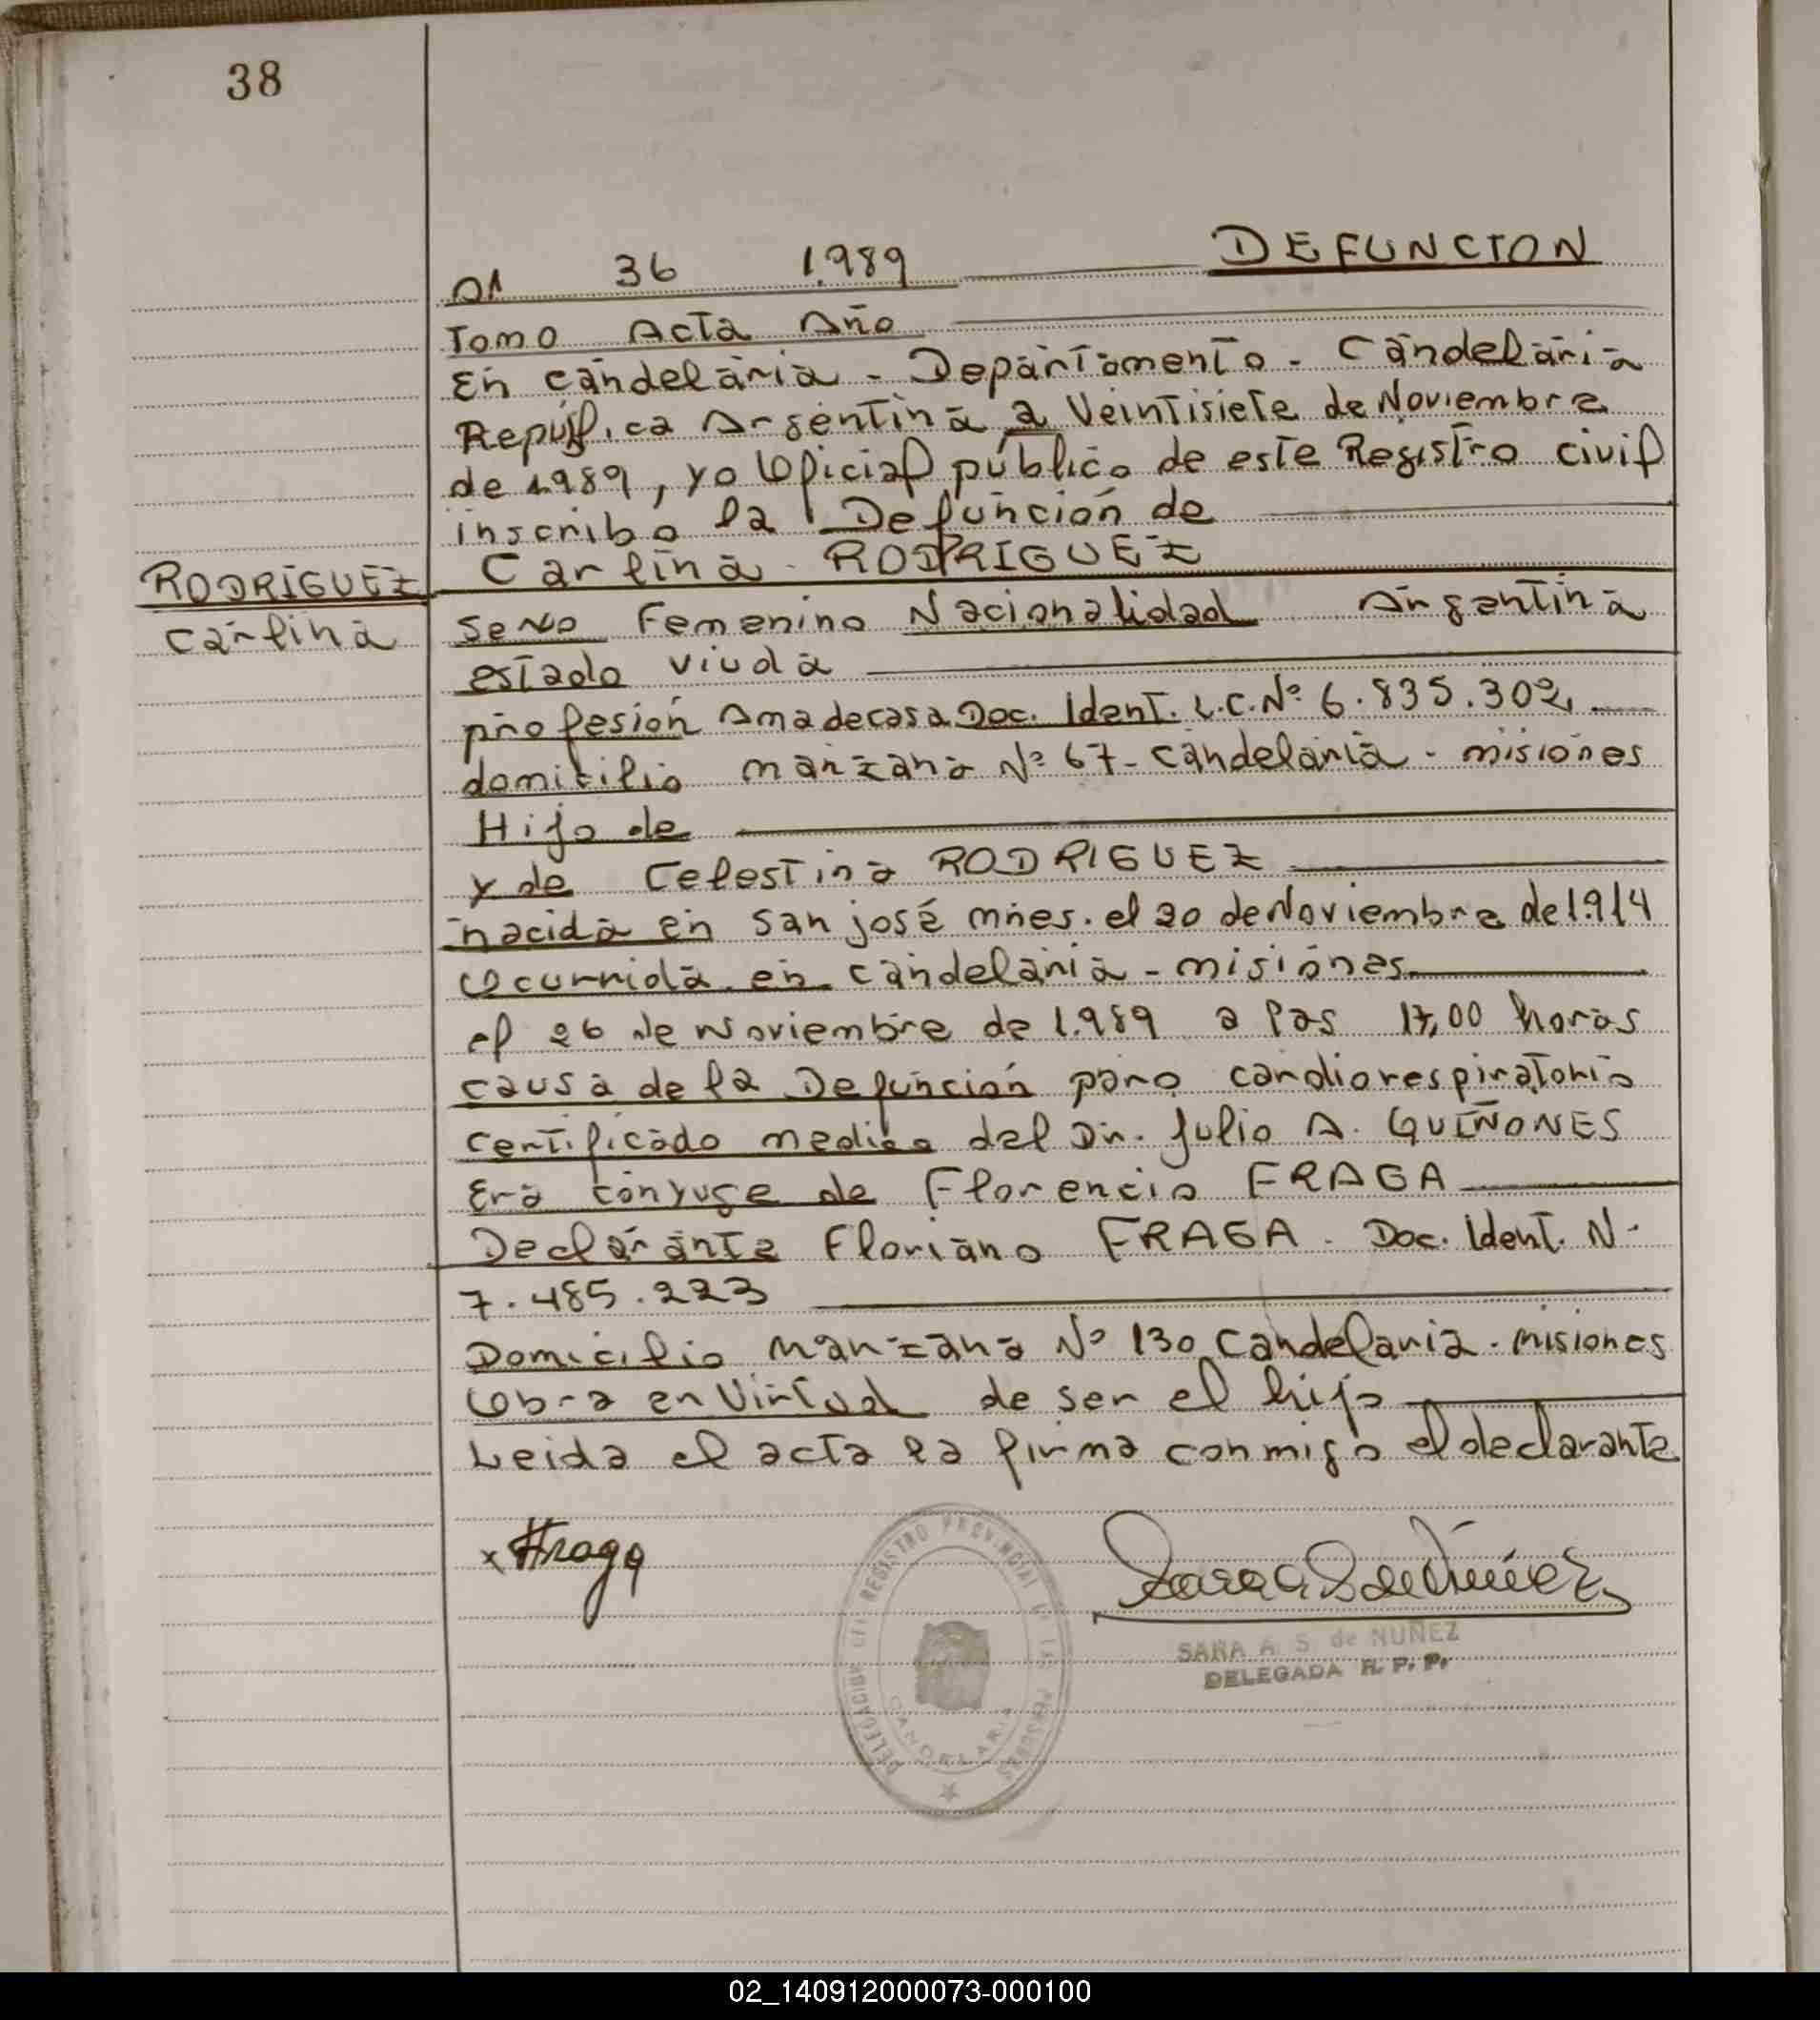 38
01 36 1.989 DEFUNCION
Tomo Acta Año
En Candelaria - Departamento - Candelaria
República Argentina a Veintisiete de Noviembre
de 1.989, yo Oficial público de este Registro civil
inscribo la Defunción de
Carlina - RODRIGUEZ
RODRIGUEZ
Carlina
Sexo Femenino Nacionalidad Argentina
estado viuda
profesión Ama de casa Doc. Ident. L.C. Nº 6.835.302
domicilio manzana Nº 67 - Candelaria - misiones
Hijo de
y de Celestina RODRIGUEZ
nacida en San josé mnes. el 20 de Noviembre de 1.914
Ocurrida en Candelaria - misiones
el 26 de Noviembre de 1.989 a las 17,00 horas
causa de la Defunción paro cardiorespiratorio
certificado medico del Dr. Julio A. QUIÑONES
Era conyuge de Florencio FRAGA
Declarante Floriano FRAGA - Doc. Ident. N-
7.485.223
Domicilio manzana Nº 130 Candelaria - misiones
Obra en Virtud de ser el hijo
Leida el acta la firma conmigo el declarante
x Fraga
DELEGACION DEL REGISTRO PROVINCIAL DE LAS PERSONAS
CANDELARIA
SARA A. S. de NUÑEZ
DELEGADA R. P. P.
02_140912000073-000100